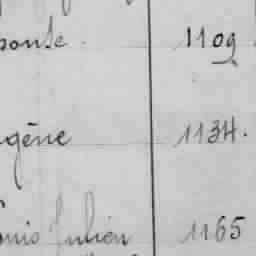 ponse. 1109.
gène 1134.
onio Julien 1165